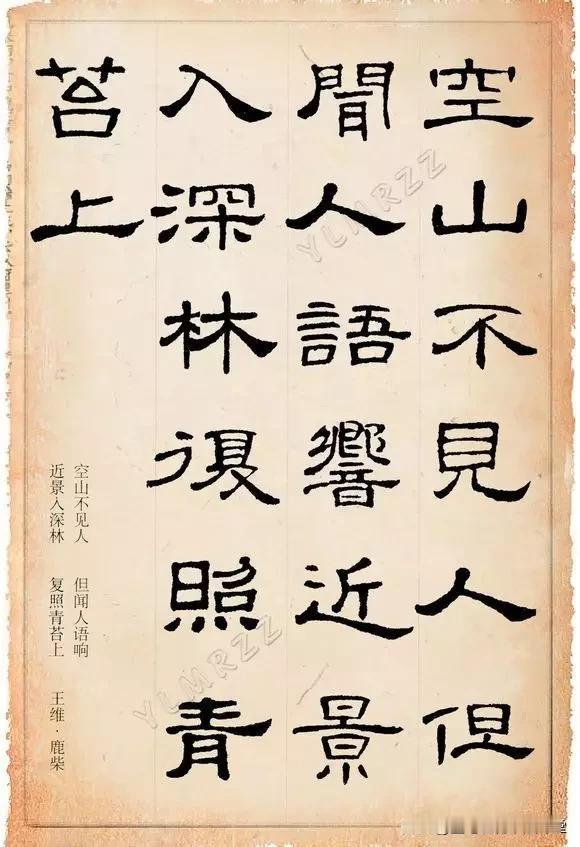 空山不見人但
聞人語響近景
入深林復照青
苔上
空山不见人 但闻人语响
近景入深林 复照青苔上 王维·鹿柴
YLMRZZ
YLMRZZ